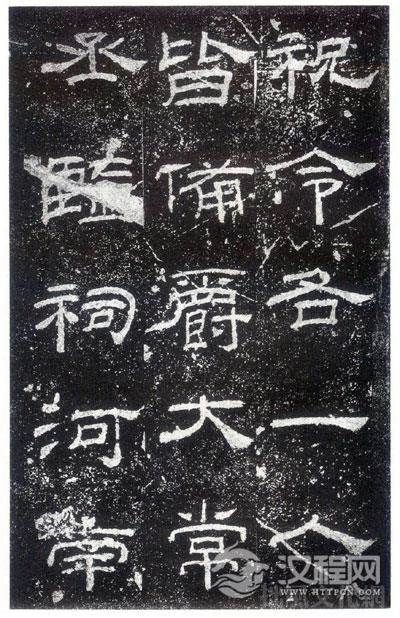 祝令各一人
皆備爵大常
丞監祠河南
汉程网
WWW.HTTPCN.COM